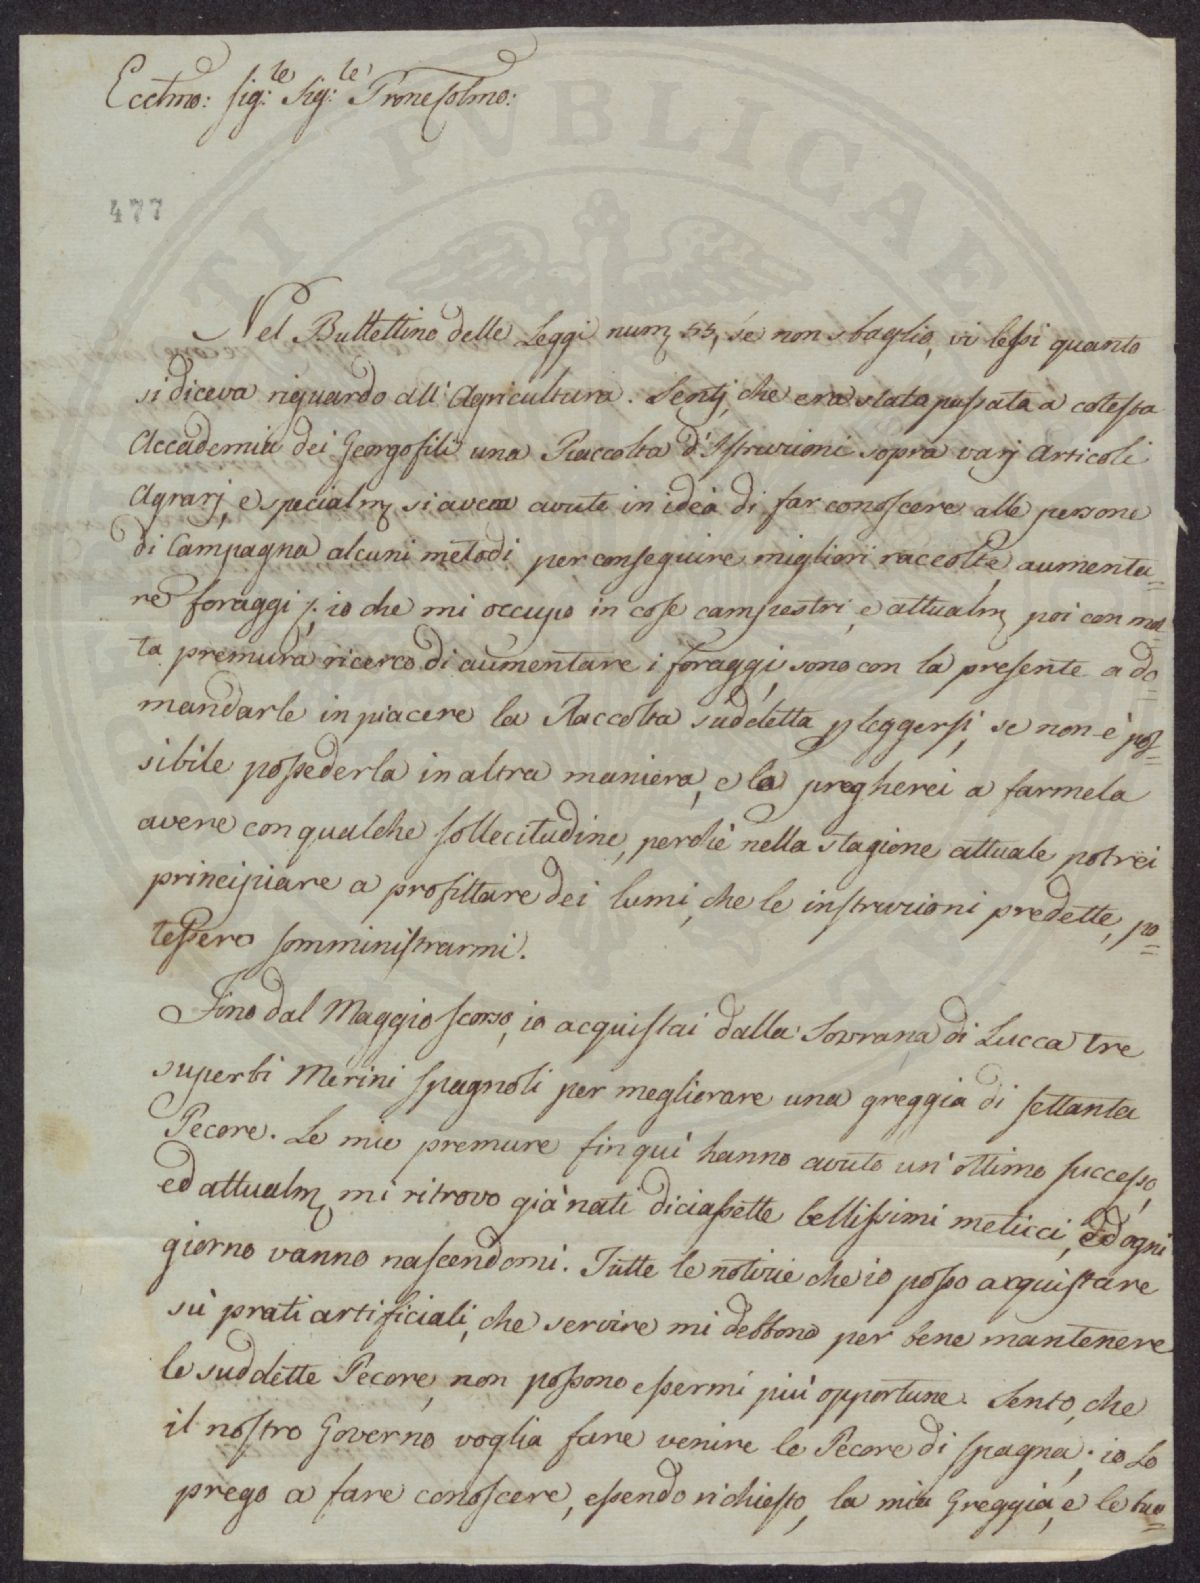 Eccl̃mo: Sig:re Sig:re Prõne Colmo:
477
Nel Bullettino delle Leggi num, 55, se non sbaglio, vi lessi quanto
si diceva riguardo all'Agricultura. Sentj, che era stata passata a cotesta
Accademia dei Georgofili una Raccolta d'Istruzioni sopra varj Articoli
Agrarj, e specialm, si avea avute in idea di far conoscere alle persone
di Campagna alcuni metodi per conseguire migliori raccolte, aumenta=
re foraggi p; io che mi occupo in cose campestri, e attualm, poi con mol=
ta premura ricerco di aumentare i foraggi, sono con la presente a do=
mandarle in piacere la Raccolta suddetta p leggersi, se non è pos=
sibile possederla in altra maniera, e la pregherei a farmela
avere con qualche sollecitudine, perchè nella stagione attuale potrei
principiare a profittare dei lumi, che le instruzioni predette, po=
tessero somministrarmi.
Fino dal Maggio scorso, io acquistai dalla Sovrana di Lucca tre
superbi Merini Spagnoli per megliorare una greggia di settanta
Pecore. Le mie premure fin quì hanno avuto un'ottimo successo,
ed attualm, mi ritrovo già nati diciassette bellissimi meticci, ed ogni
giorno vanno nascendomi. Tutte le notizie che io posso acquistare
sù prati artificiali, che servire mi debbono per bene mantenere
le suddette Pecore, non possono essermi più opportune. Sento, che
il nostro Governo voglia fare venire le Pecore di Spagna; io Lo
prego a fare conoscere, essendo richiesto, la mia Greggia, e le buo=